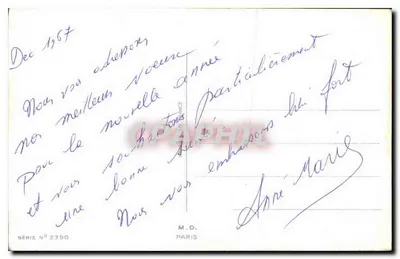 Dec 1967
Nous vous adressons
nos meilleurs voeux
Pour la nouvelle année
et vous souhaitons particulièrement
une bonne santé
Nous vous embrassons bien fort
Anne Marie
SERIE N° 2390
M.D.
PARIS